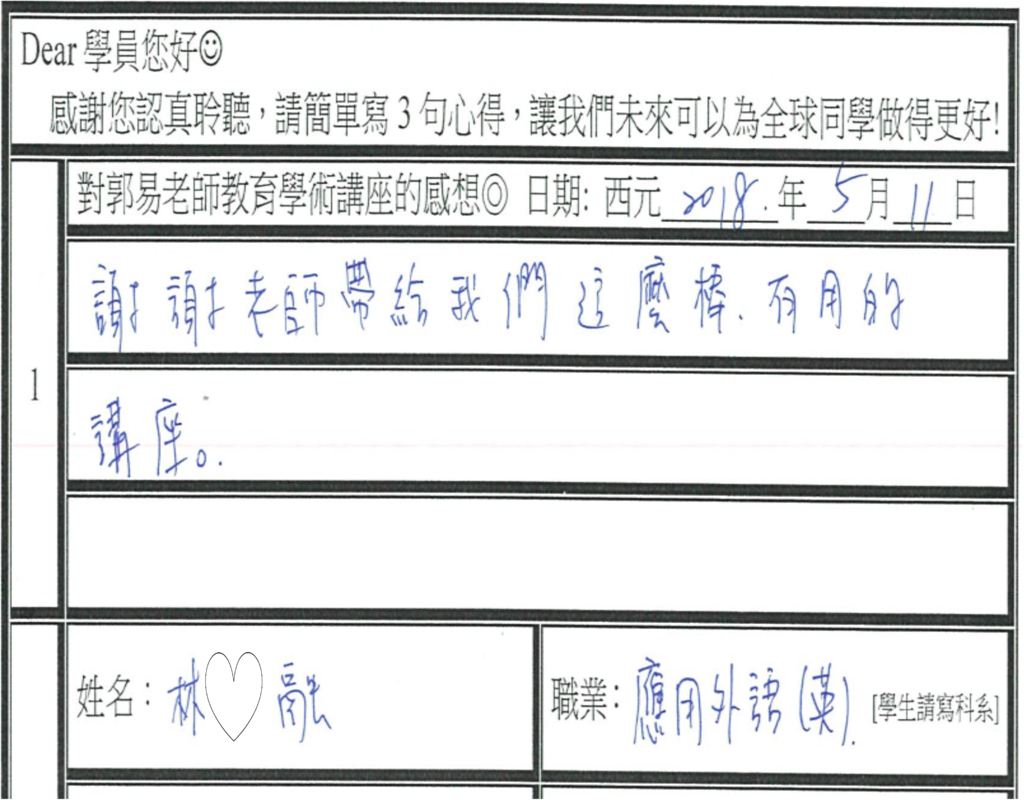 Dear 學員您好☺
感謝您認真聆聽，請簡單寫 3 句心得，讓我們未來可以為全球同學做得更好!
對郭易老師教育學術講座的感想◎ 日期: 西元 2018. 年 5 月 11 日
1
謝謝老師帶給我們這麼棒、有用的
講座。.
姓名： 林♡融
職業： 應用外語(英). [學生請寫科系]